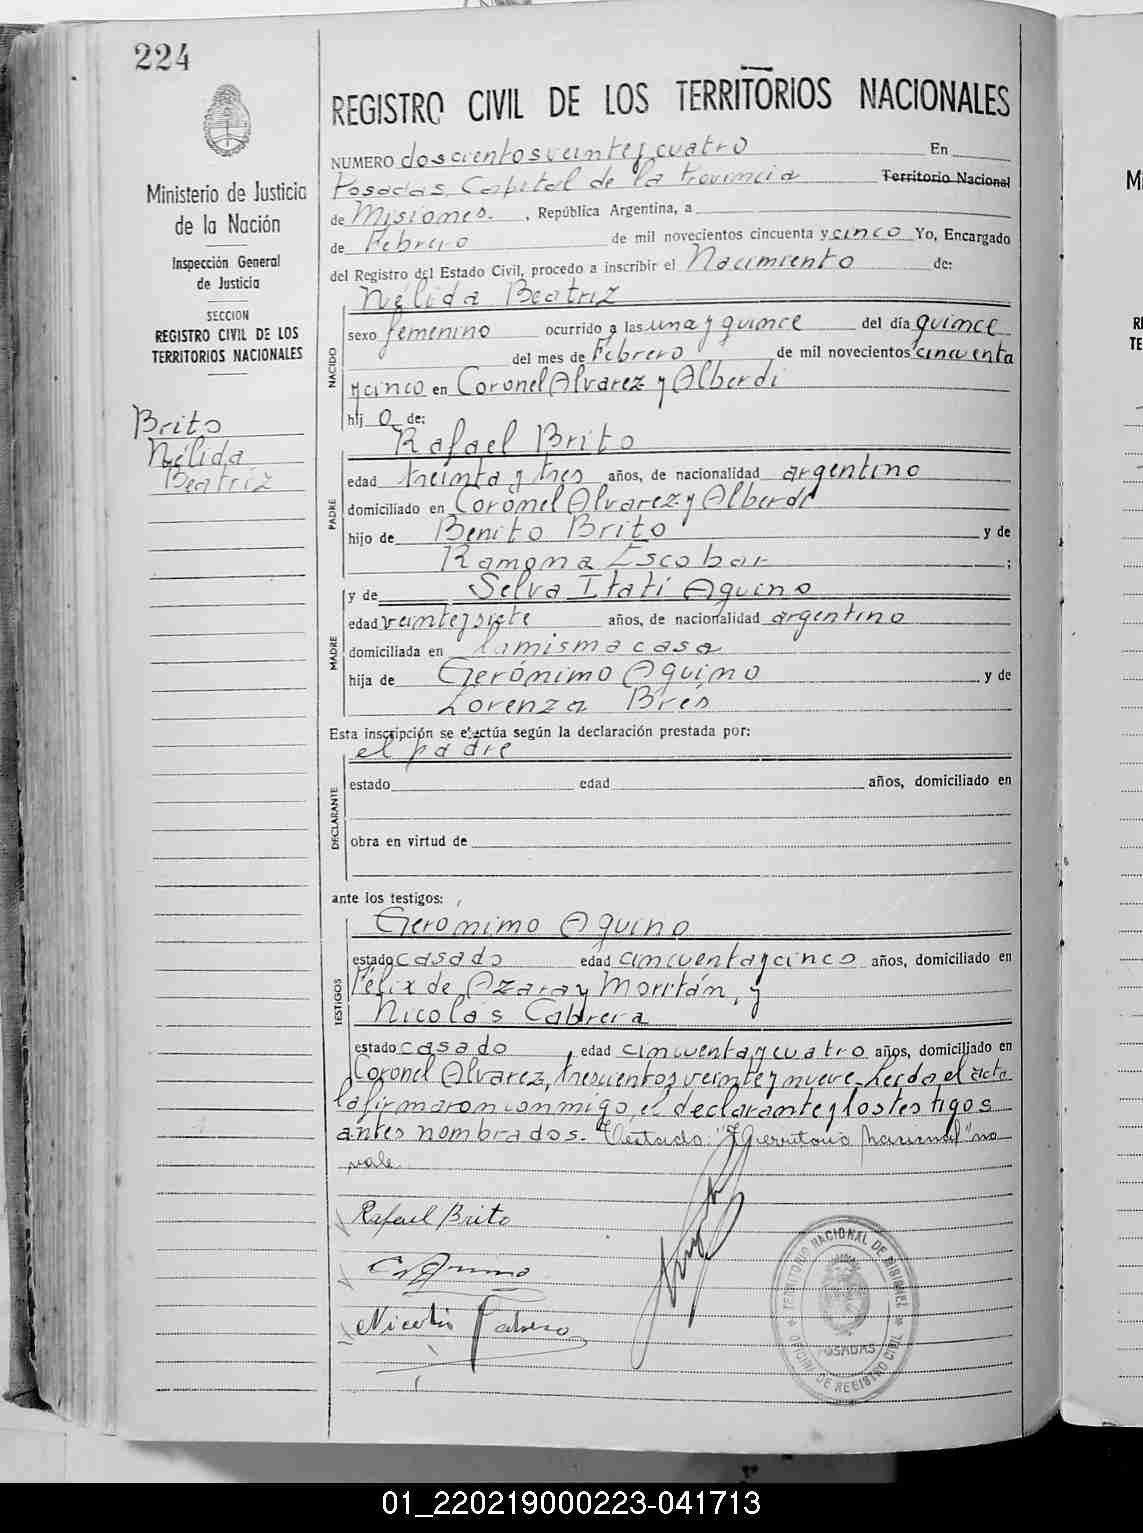 224
Ministerio de Justicia
de la Nación
Inspección General
de Justicia
SECCION
REGISTRO CIVIL DE LOS
TERRITORIOS NACIONALES
Brito
Nélida
Beatriz
REGISTRO CIVIL DE LOS TERRITORIOS NACIONALES
NUMERO doscientos veinte y cuatro En
Posadas Capital de la Provincia Territorio Nacional
de Misiones. , República Argentina, a
de Febrero de mil novecientos cincuenta y cinco Yo, Encargado
del Registro del Estado Civil, procedo a inscribir el Nacimiento de:
NACIDO
Nélida Beatriz
sexo femenino ocurrido a las una y quince del día quince
del mes de Febrero de mil novecientos cincuenta
y cinco en Coronel Alvarez y Alberdi
hij o de:
PADRE
Rafael Brito
edad treinta y tres años, de nacionalidad argentino
domiciliado en Coronel Alvarez y Alberdi
hijo de Benito Brito y de
Ramona Escobar ;
MADRE
y de Selva Itati Aquino
edad veinte y siete años, de nacionalidad argentino
domiciliada en la misma casa
hija de Gerónimo Aquino y de
Lorenza Brés
Esta inscripción se efectúa según la declaración prestada por:
DECLARANTE
el padre
estado edad años, domiciliado en
obra en virtud de
ante los testigos:
TESTIGOS
Geronimo Aquino
estado casado edad cincuenta y cinco años, domiciliado en
Félix de Azara y Moritán, y
Nicolás Cabrera
estado casado , edad cincuenta y cuatro años, domiciliado en
Coronel Alvarez, trescientos veinte y nueve. Leída el acta
la firmaron conmigo, el declarante y los testigos
antes nombrados. Testado: "Territorio Nacional" no
vale.
Rafael Brito
Nicolás Cabrera
TERRITORIO NACIONAL DE MISIONES
POSADAS
OFICINA DE REGISTRO CIVIL
01_220219000223-041713